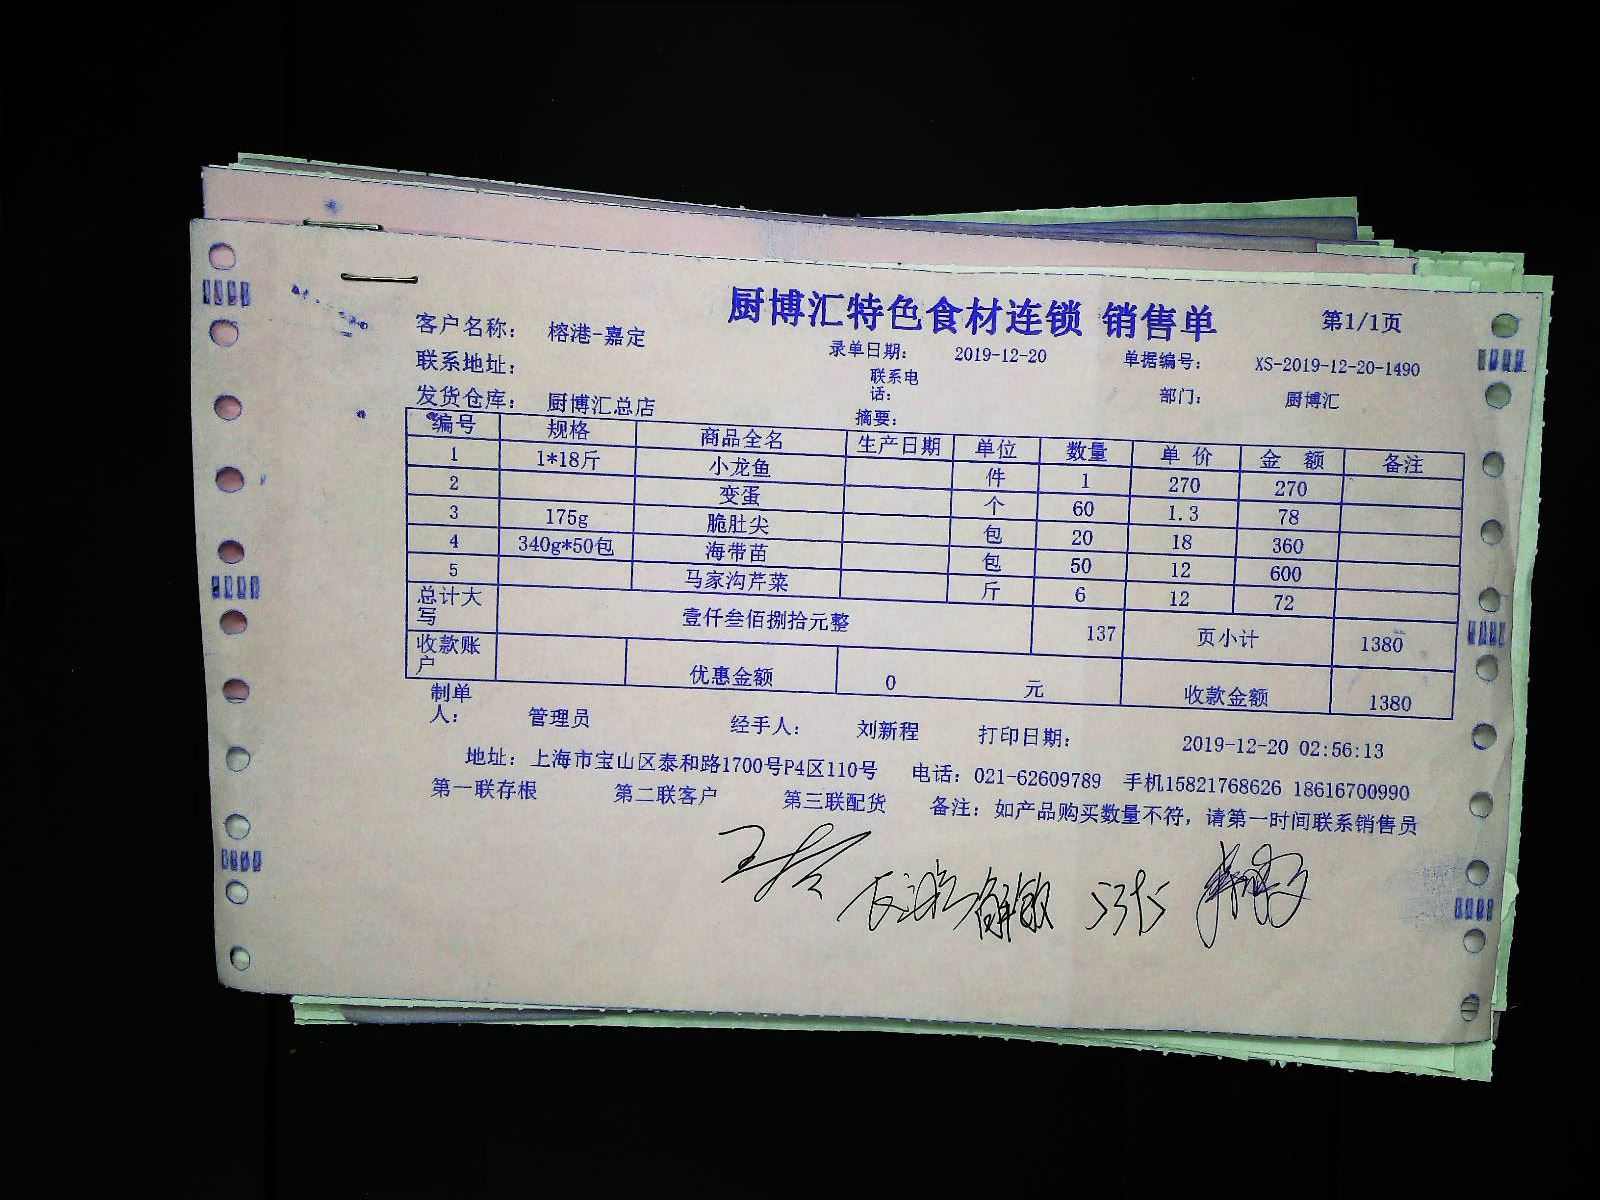 厨博汇特色食材连锁 销售单 第1/1页
客户名称： 榕港-嘉定 录单日期： 2019-12-20 单据编号： XS-2019-12-20-1490
联系地址： 联系电话： 部门： 厨博汇
发货仓库： 厨博汇总店 摘要：
编号 规格 商品全名 生产日期 单位 数量 单价 金额 备注
1 1*18斤 小龙鱼 件 1 270 270
2 变蛋 个 60 1.3 78
3 175g 脆肚尖 包 20 18 360
4 340g*50包 海带苗 包 50 12 600
5 马家沟芹菜 斤 6 12 72
总计大写 壹仟叁佰捌拾元整 137 页小计 1380
收款账户 优惠金额 0 元 收款金额 1380
制单人： 管理员 经手人： 刘新程 打印日期： 2019-12-20 02:56:13
地址：上海市宝山区泰和路1700号P4区110号 电话：021-62609789 手机15821768626 18616700990
第一联存根 第二联客户 第三联配货 备注：如产品购买数量不符，请第一时间联系销售员